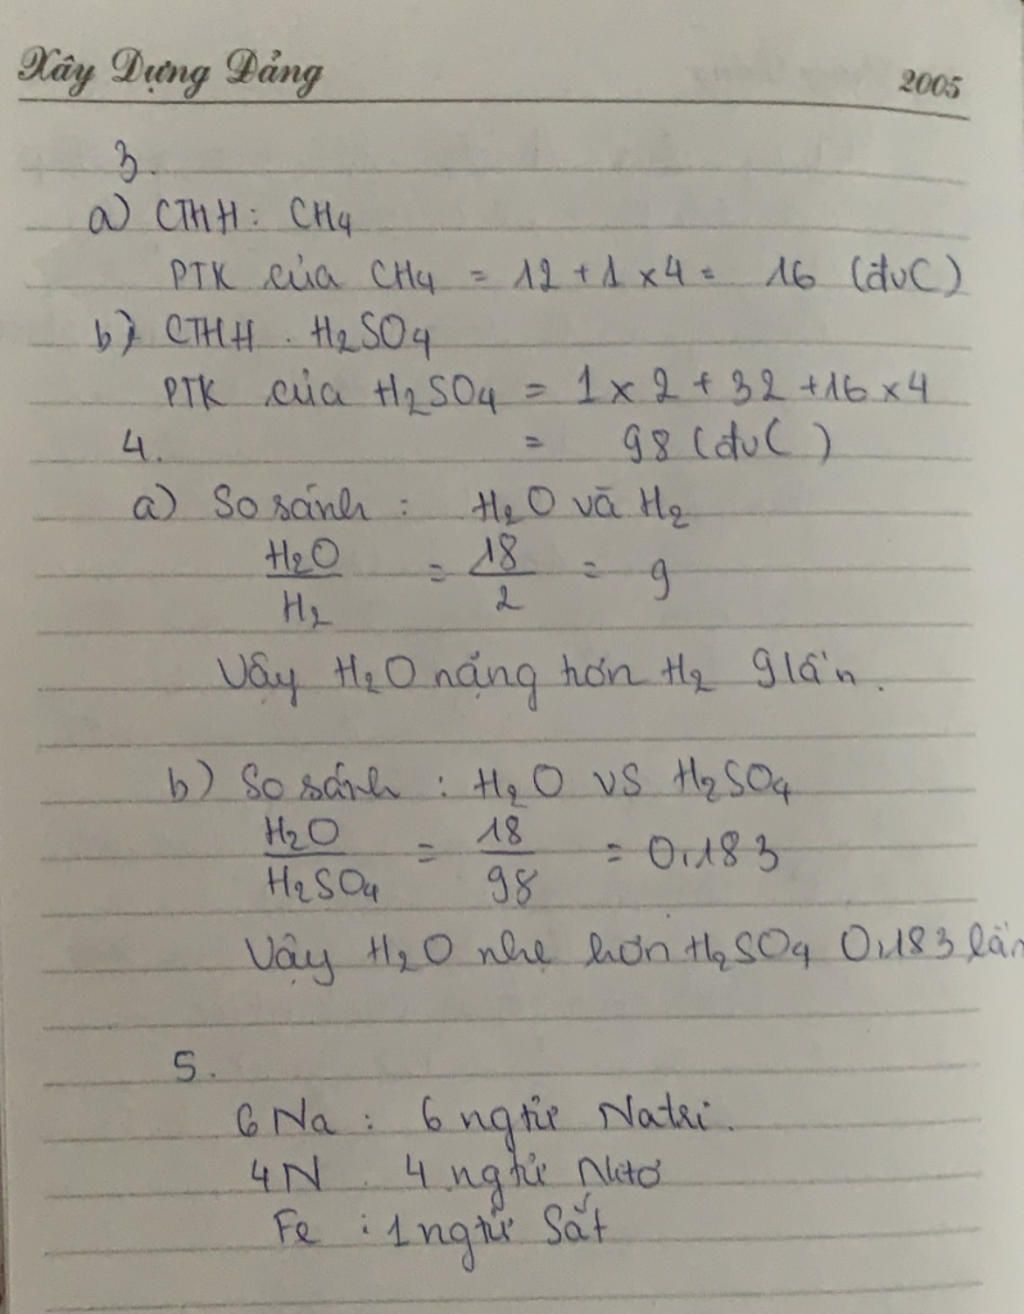 Xây Dựng Đảng 2005
3.
a) CTHH: CH₄
PTK của CH₄ = 12 + 1 x 4 = 16 (đvC)
b) CTHH. H₂SO₄
PTK của H₂SO₄ = 1 x 2 + 32 + 16 x 4
4. = 98 (đvC)
a) So sánh: H₂O và H₂
H₂O/H₂ = 18/2 = 9
Vậy H₂O nặng hơn H₂ 9 lần.
b) So sánh: H₂O vs H₂SO₄
H₂O/H₂SO₄ = 18/98 = 0,183
Vậy H₂O nhẹ hơn H₂SO₄ 0,183 lần
5.
6 Na: 6 ngtử Natri.
4N. 4 ngtử Nitơ
Fe: 1 ngtử Sắt